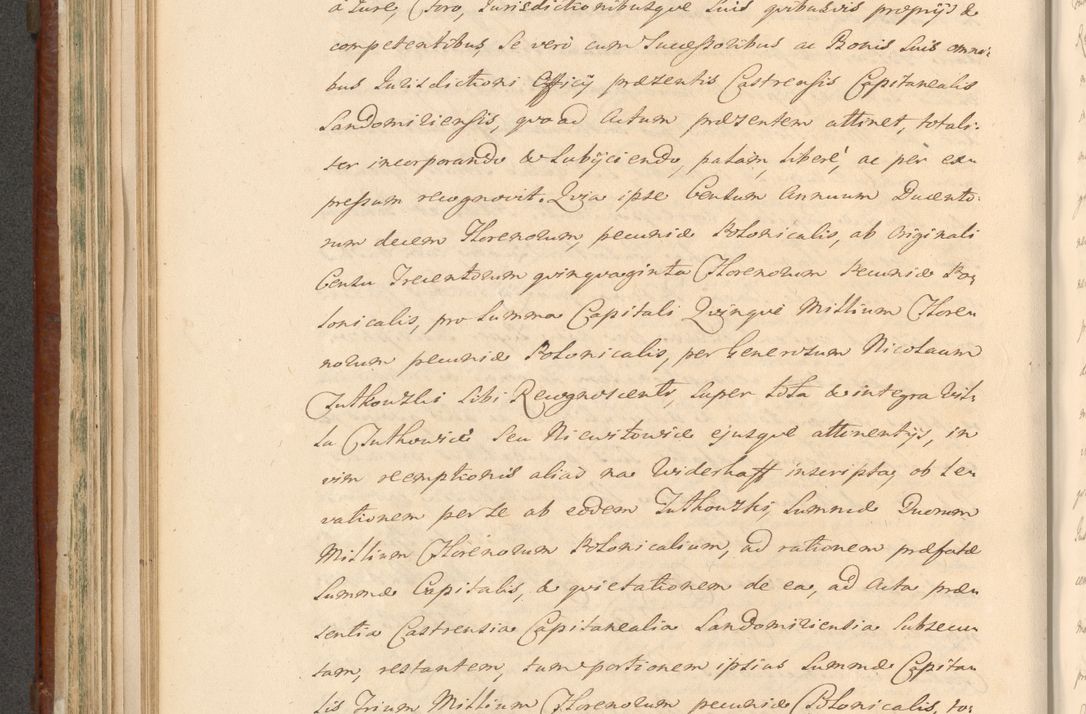 à Jure, Foro, Jurisdictionibusque Suis quibusvis proprijs &
competentibus, Se verò cum Successoribus ac Bonis Suis omni-
bus Jurisdictioni Officÿ præsentis Castrensis Capitanealis
Sandomiriensis, quo ad Actum præsentem attinet, totali-
ter incorporando & Subÿciendo, palam, liberè, ac per ex-
pressum recognovit. Quia ipse Censum Annuum Ducento-
rum decem Florenorum, pecuniæ Polonicalis, ab Originali
Censu Trecentorum quinquaginta Florenorum Pecuniæ Po-
lonicalis, pro Summa Capitali Quinque Millium Flore-
norum pecuniæ Polonicalis, per Generosum Nicolaum
Jutkowski Sibi Recognoscenti, Super tota & integra Vil-
la Jutkowice Seu Niewitowice ejusque attinentijs, in
vim reemptionis aliàs na Widerkaff inscripta, ob le-
vationem per Se ab eodem Jutkowski, Summæ Duorum
Millium Florenorum Polonicalium, ad rationem præfatæ
Summæ Capitalis, & quietationem de ea, ad Acta præ-
sentia Castrensia Capitanealia Sandomiriensia Subsecu-
tam, restantem, tum portionem ipsius Summæ Capita-
lis Trium Millium Florenorum pecuniæ Polonicalis, to-